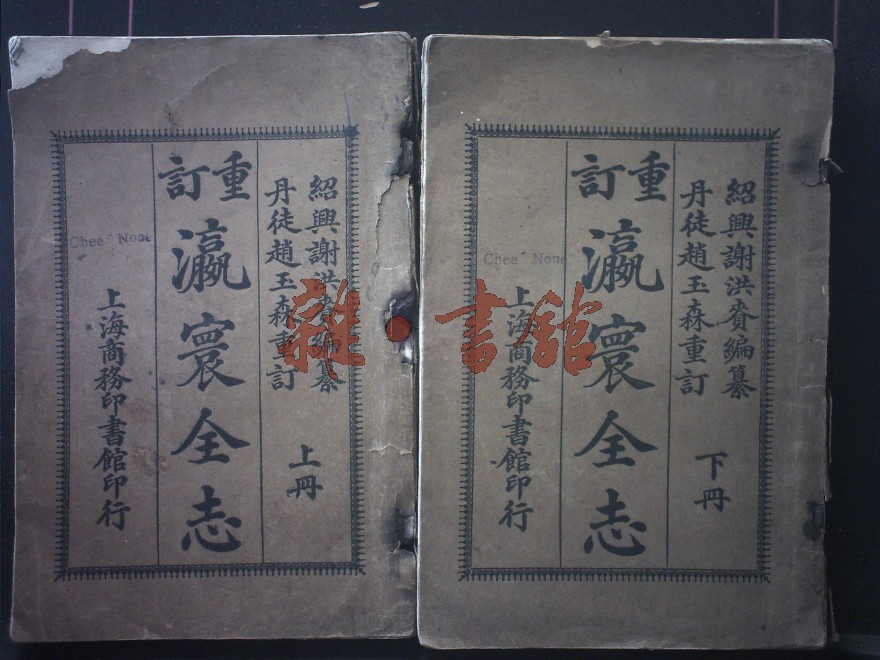 紹興謝洪賚編纂
丹徒趙玉森重訂
上冊
重訂
瀛寰全志
Chee None
上海商務印書館印行
紹興謝洪賚編纂
丹徒趙玉森重訂
下冊
重訂
瀛寰全志
Chee None
上海商務印書館印行
雜·書館